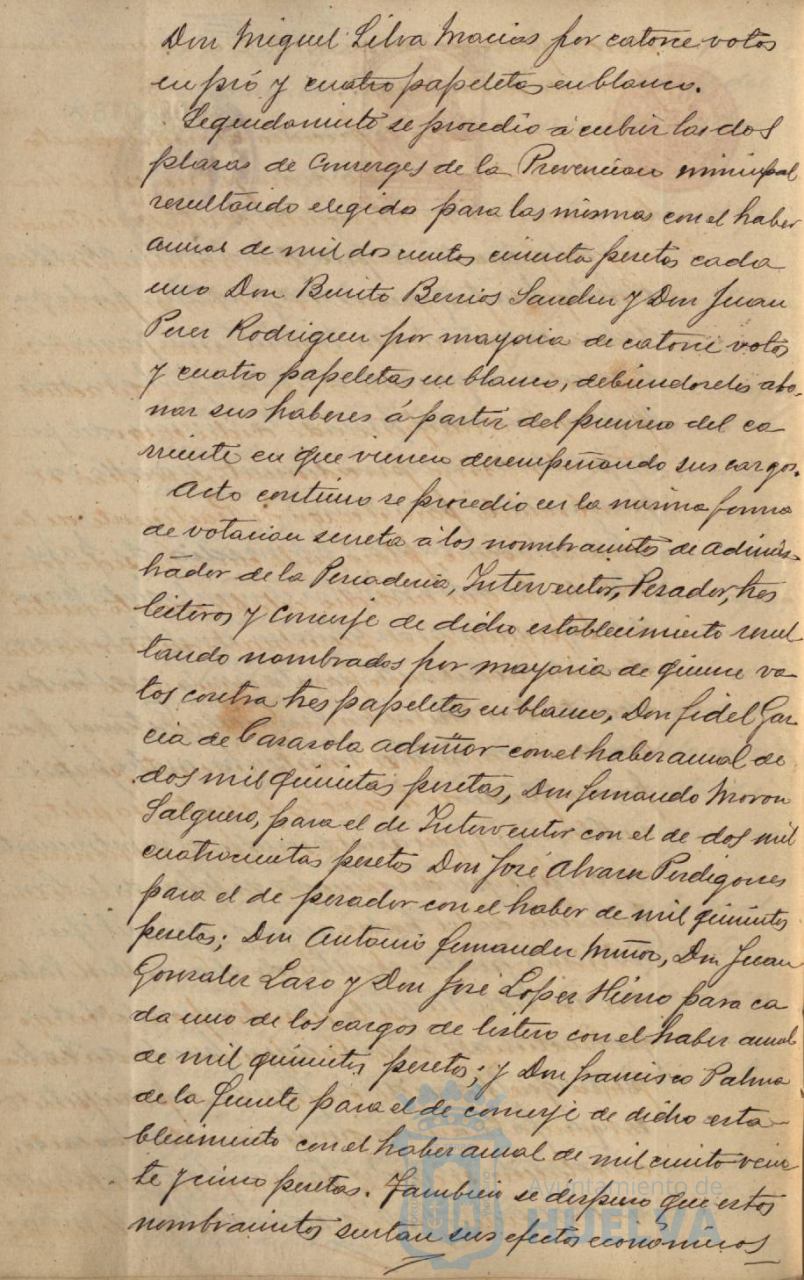 Don Miguel Silva Macias por catorce votos
en pró y cuatro papeletas en blanco.
Seguidamente se procedio á cubrir las dos
plazas de Conserges de la Prevencion municipal
resultando elegidos para las mismas con el haber
anual de mil doscientas cincuenta pesetas cada
uno Don Benito Berrios Sanchez y Don Juan
Perez Rodriguez por mayoria de catorce votos
y cuatro papeletas en blanco, debiendoseles abo-
nar sus haberes á partir del primero del co
rriente en que vienen desempeñando sus cargos.
Acto continuo se procedio en la misma forma
de votacion secreta á los nombramientos de adminis-
trador de la Pescaderia, Interventor, Pesador, tres
listeros y conserje de dicho establecimiento resul
tando nombrados por mayoria de quince vo
tos contra tres papeletas en blanco, Don Fidel Gar
cia de Carasola admtor con el haber anual de
dos mil quinientas pesetas, Don Fernando Moron
Salguero, para el de Interventor con el de dos mil
cuatrocientas pesetas Don José Alvarez Perdigones
para el de pesador con el haber de mil quinientas
pesetas; Don Antonio Fernandez Muñoz, Don Juan
Gonzalez Lazo y Don José Lopez Hierro para ca
da uno de los cargos de listero con el haber anual
de mil quinientas pesetas; y Don Francisco Palma
de la Fuente para el de conserje de dicho esta-
blecimiento con el haber anual de mil ciento vein
te y cinco pesetas. Tambien se dispuso que estos
nombramientos surtan sus efectos económicos
Ayuntamiento de
HUELVA